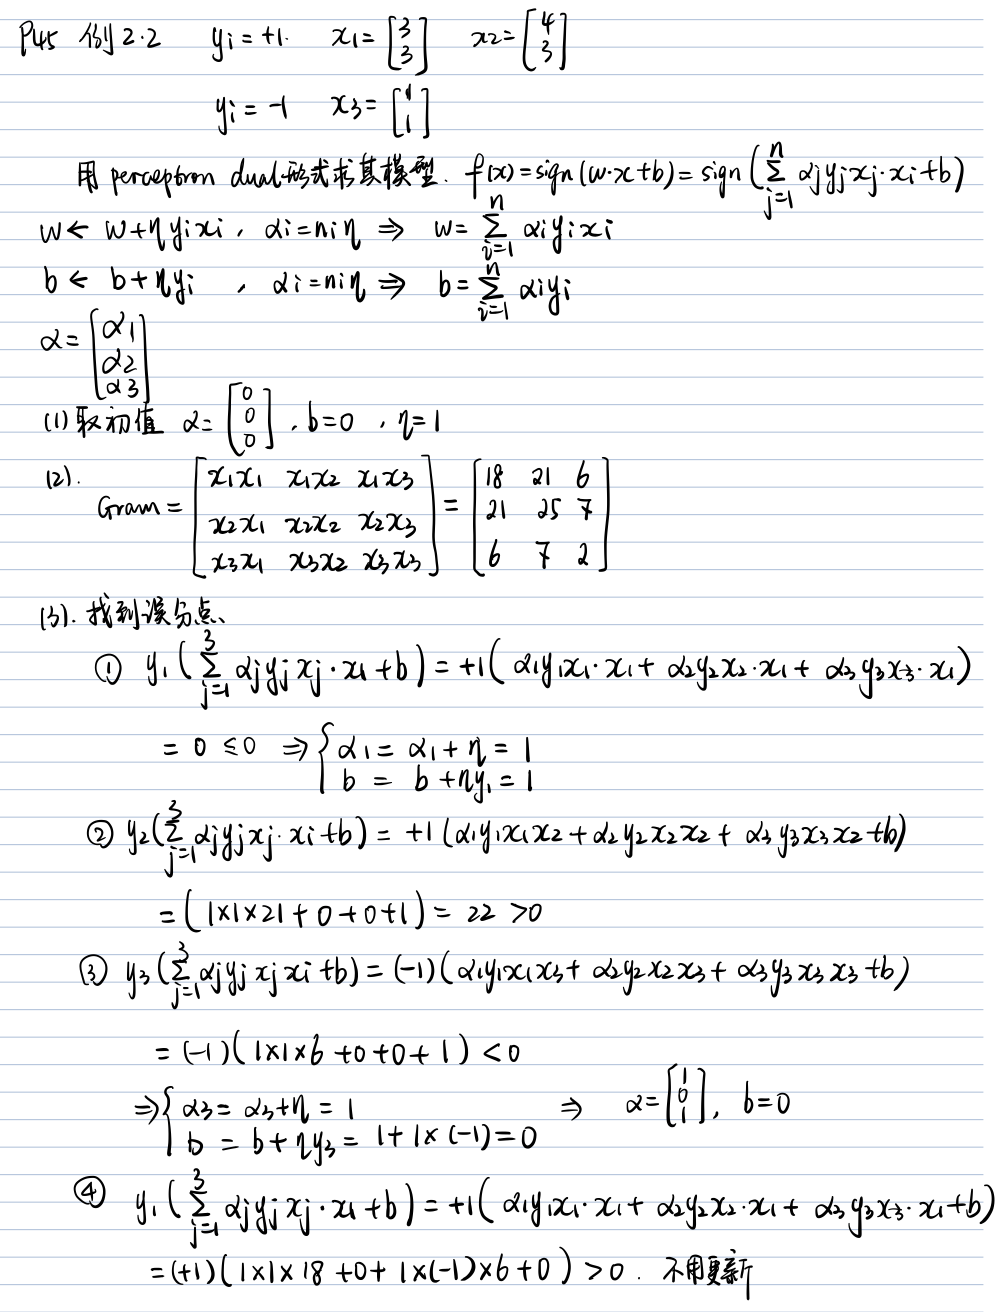 P45 例2.2 yi=+1. x1=[3 3] x2=[4 3]
yi=-1 x3=[1 1]
用 perceptron dual形式求其模型. f(x)=sign(w·x+b)=sign(∑_{j=1}^{n} αjyjxj·xi+b)
w← w+ηyixi , αi=niη ⇒ w=∑_{i=1}^{n} αiyixi
b← b+ηyi , αi=niη ⇒ b=∑_{i=1}^{n} αiyi
α=[α1 α2 α3]
(1)取初值 α=[0 0 0] , b=0 , η=1
(2).
Gram=[x1x1 x1x2 x1x3 x2x1 x2x2 x2x3 x3x1 x3x2 x3x3]=[18 21 6 21 25 7 6 7 2]
(3). 找到误分点、
① y1(∑_{j=1}^{3} αjyjxj·x1+b)=+1(α1y1x1·x1+α2y2x2·x1+α3y3x3·x1)
=0 ≤0 ⇒{α1=α1+η=1
b=b+ηy1=1
② y2(∑_{j=1}^{3} αjyjxj·xi+b)=+1(α1y1x1x2+α2y2x2x2+α3y3x3x2+b)
=(1×1×21+0+0+1)=22>0
③ y3(∑_{j=1}^{3} αjyjxjxi+b)=(-1)(α1y1x1x3+α2y2x2x3+α3y3x3x3+b)
=(-1)(1×1×6+0+0+1)<0
⇒{α3=α3+η=1 ⇒ α=[1 0 1], b=0
b=b+ηy3=1+1×(-1)=0
④ y1(∑_{j=1}^{3} αjyjxj·x1+b)=+1(α1y1x1·x1+α2y2x2·x1+α3y3x3·x1+b)
=(+1)(1×1×18+0+1×(-1)×6+0)>0. 不用更新